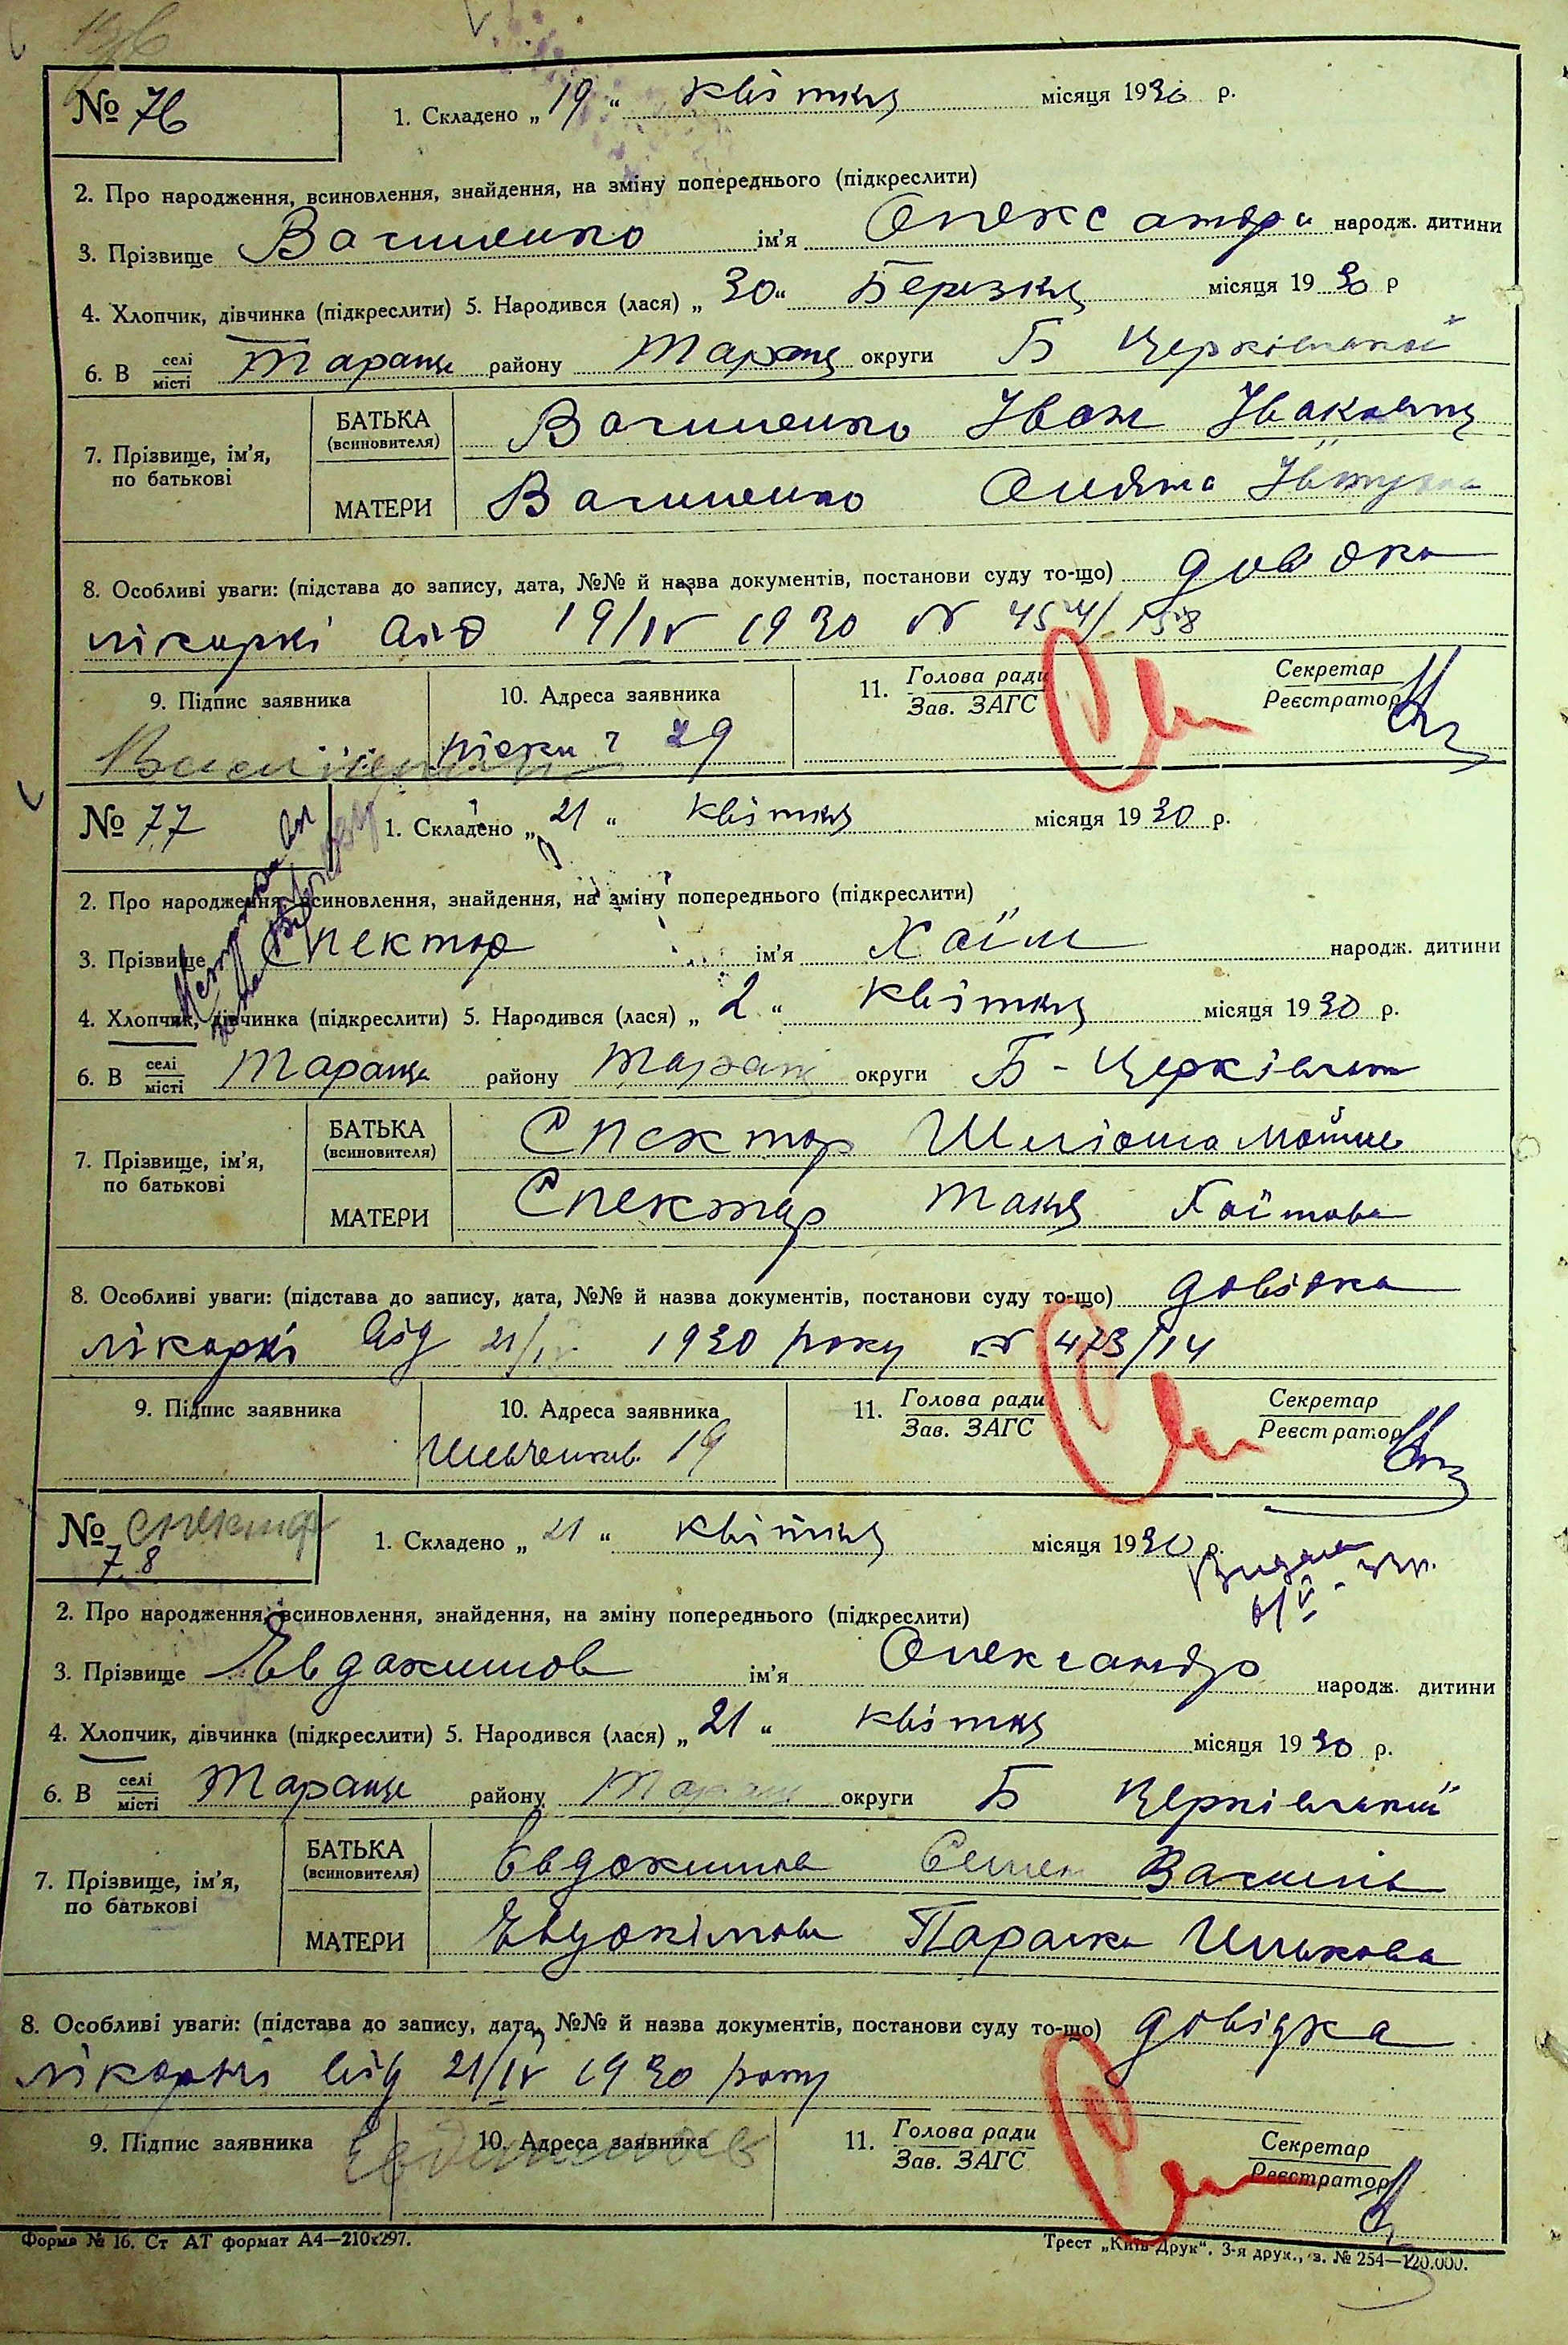 № 76
1. Складено „ 19 “ квітня місяця 1930 р.
2. Про народження, всиновлення, знайдення, на зміну попереднього (підкреслити)
3. Прізвище Василенко ім'я Олександра народж. дитини
4. Хлопчик, дівчинка (підкреслити) 5. Народився (лася) „ 30 “ Березня місяця 1930 р
6. В селі/місті Тараща району Таращ округи Б Церківський
7. Прізвище, ім'я, по батькові
БАТЬКА (всиновителя) Василенко Іван
МАТЕРИ Василенко
8. Особливі уваги: (підстава до запису, дата, №№ й назва документів, постанови суду то-що) довідка
лікаркі від 19/IV 1930 № 454/158
9. Підпис заявника 10. Адреса заявника 11. Голова ради Зав. ЗАГС Секретар Реєстратор
29
№ 77
1. Складено „ 21 “ квітня місяця 1930 р.
2. Про народження, всиновлення, знайдення, на зміну попереднього (підкреслити)
3. Прізвище Спектор ім'я Хаїм народж. дитини
4. Хлопчик, дівчинка (підкреслити) 5. Народився (лася) „ 2 “ квітня місяця 1930 р.
6. В селі/місті Тараща району Таращ округи Б-Церківська
7. Прізвище, ім'я, по батькові
БАТЬКА (всиновителя) Спектор Шлiома
МАТЕРИ Спектор Таня Хаїмова
8. Особливі уваги: (підстава до запису, дата, №№ й назва документів, постанови суду то-що) довідка
лікаркі від 21/IV 1930 року № 473/14
9. Підпис заявника 10. Адреса заявника 11. Голова ради Зав. ЗАГС Секретар Реєстратор
Шевченків. 19
№ Спектор
78
1. Складено „ 21 “ квітня місяця 1930 р.
2. Про народження, всиновлення, знайдення, на зміну попереднього (підкреслити)
3. Прізвище Евдокимов ім'я Олександр народж. дитини
4. Хлопчик, дівчинка (підкреслити) 5. Народився (лася) „ 21 “ квітня місяця 1930 р.
6. В селі/місті Тараща району Таращ округи Б Церківський
7. Прізвище, ім'я, по батькові
БАТЬКА (всиновителя) Евдокимов Семен Василів
МАТЕРИ Евдокімова Параска Илькова
8. Особливі уваги: (підстава до запису, дата, №№ й назва документів, постанови суду то-що) довідка
лікаркі від 21/IV 1930 року
9. Підпис заявника 10. Адреса заявника 11. Голова ради Зав. ЗАГС Секретар Реєстратор
Форма № 16. Ст АТ формат А4—210х297.
Трест „Київ-Друк“. 3-я друк., з. № 254—120.000.